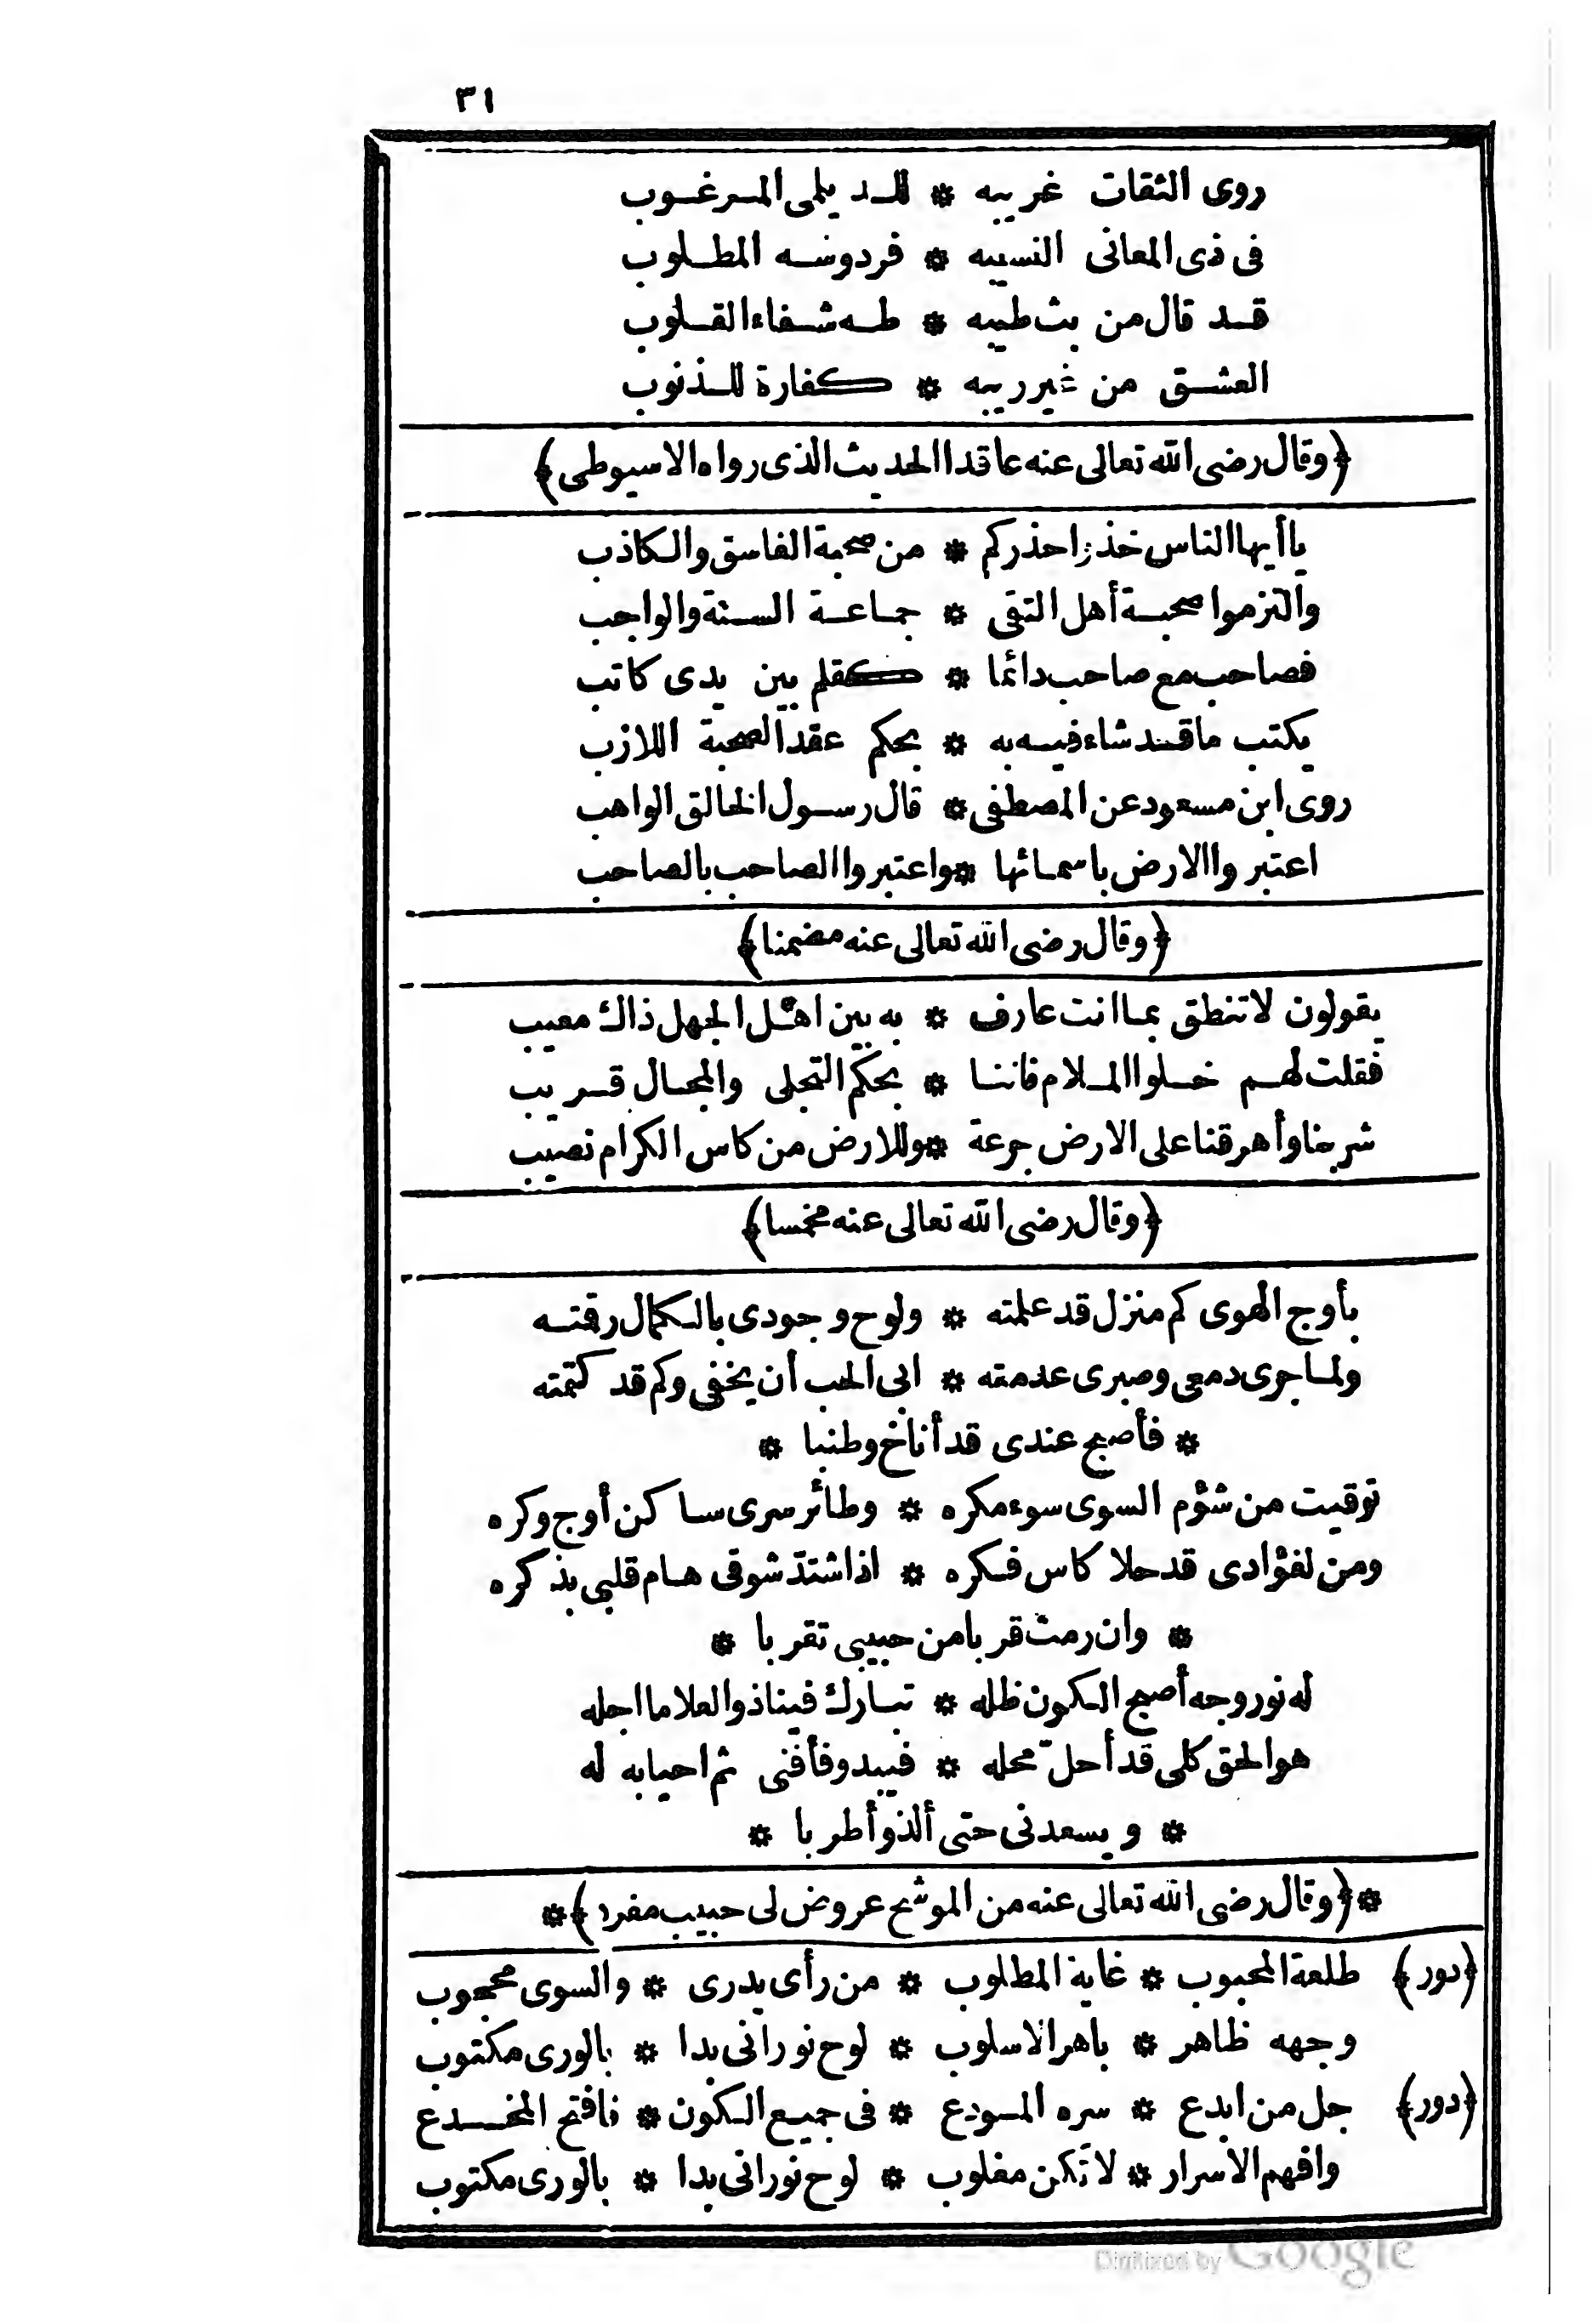 ٣١
روى الثقات غريبه * للديلمى المرغوب
فى ذى المعانى النسيبه * فردوسه المطلوب
قد قال من بث طيبه * طه شفاء القلوب
العشق من غير ريبه * كفارة للذنوب
﴿وقال رضى الله تعالى عنه عاقدا الحديث الذى رواه الاسيوطى﴾
يا أيها الناس خذوا حذركم * من صحبة الفاسق والكاذب
والتزموا صحبة أهل التقى * جماعة السنة والواجب
فصاحب مع صاحب دائما * كقلم بين يدى كاتب
يكتب ما قد شاء فيه به * بحكم عقد الصحبة اللازب
روى ابن مسعود عن المصطفى * قال رسول الخالق الواهب
اعتبروا الارض باسمائها * واعتبروا الصاحب بالصاحب
﴿وقال رضى الله تعالى عنه مضمنا﴾
يقولون لا تنطق بما انت عارف * به بين اهل الجهل ذاك معيب
فقلت لهم خلوا الملام فاننا * بحكم التجلى والمجال قريب
شربنا وأهرقنا على الارض جرعة * وللارض من كاس الكرام نصيب
﴿وقال رضى الله تعالى عنه مخمسا﴾
بأوج الهوى كم منزل قد علمته * ولوح وجودى بالكمال رقته
ولما جرى دمعى وصبرى عدمته * ابى الحب أن يخفى وكم قد كتمته
* فأصبح عندى قد أناخ وطنبا *
توقيت من شؤم السوى سوء مكره * وطائر سرى ساكن أوج وكره
ومن لفؤادى قد حلا كاس فكره * اذا اشتدّ شوقى هام قلبى بذكره
* وان رمت قربا من حبيبى تقربا *
له نور وجه أصبح الكون ظله * تبارك فيناذو العلا ما اجله
هو الحق كلى قد أحلّ محله * فيبدو فأفنى ثم احيا به له
* ويسعدنى حتى ألذ وأطربا *
*﴿وقال رضى الله تعالى عنه من الموشح عروض لى حبيب مفرد﴾*
﴿دور﴾ طلعة المحبوب * غاية المطلوب * من رأى يدرى * والسوى محجوب
وجهه ظاهر * باهر الاسلوب * لوح نورانى بدا * بالورى مكتوب
﴿دور﴾ جل من ابدع * سره المودع * فى جميع الكون * فافتح المخدع
وافهم الاسرار * لا تكن مغلوب * لوح نورانى بدا * بالورى مكتوب
Digitized by Google